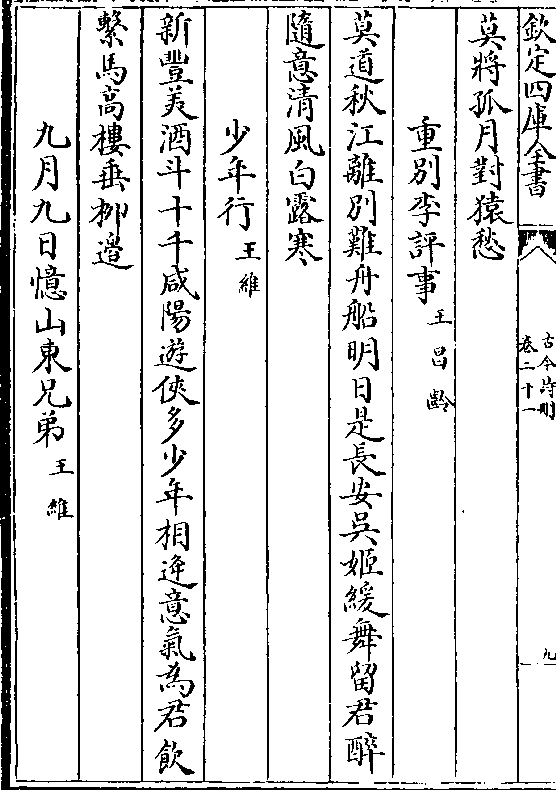 欽定四庫全書
古今詩刪
卷二十一
九
莫將孤月對猿愁
重別李評事 王昌齡
莫道秋江離別難舟船明日是長安吳姬緩舞留君醉
隨意清風白露寒
少年行 王維
新豐美酒斗十千咸陽遊俠多少年相逢意氣為君飲
繫馬高樓垂栁邉
九月九日憶山東兄弟 王維